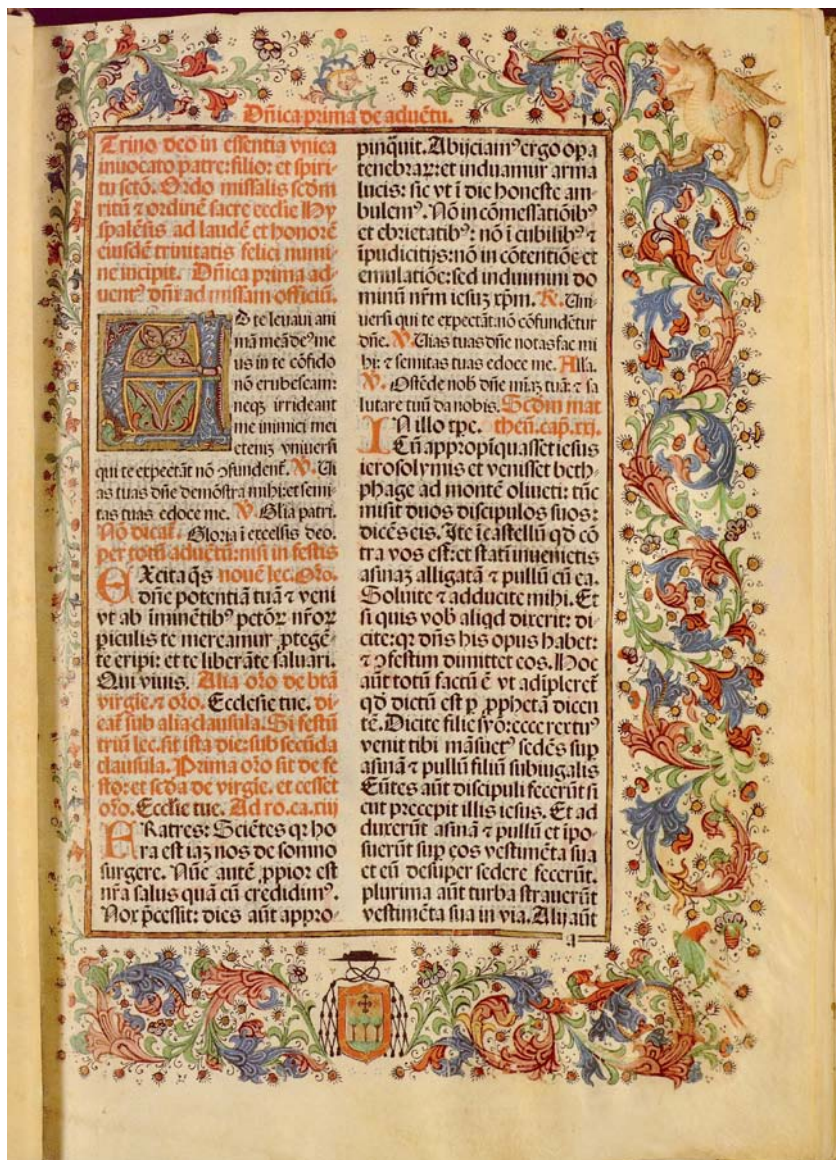 Dñica prima de aduẽtu.
Trino deo in essentia vnica
inuocato patre: filio: et spiri-
tu sctõ. Ordo missalis scdm
ritũ ⁊ ordinẽ sacre ecclie Hy
spalẽsis ad laudẽ et honorẽ
eiusdẽ trinitatis felici numi-
ne incipit. Dñica prima ad-
uentꝰ dñi ad missam officiũ.
AD te leuaui ani
mã meã deꝰ me
us in te cõfido
nõ erubescam:
neqꝫ irrideant
me inimici mei
etenim vniuersi
qui te expectãt nõ ꝯfundent̃. V. Ui
as tuas dñe demõstra mihi: et semi
tas tuas edoce me. V. Glia patri.
Nõ dicat̃. Gloria ĩ excelsis deo.
per totũ aduẽtũ: nisi in festis
EXcita q̃s nouẽ lec. Oro.
dñe potentiã tuã ⁊ veni
vt ab iminẽtibꝰ petõꝝ nr̃oꝝ
piculis te mereamur ꝓtegẽ-
te eripi: et te liberãte saluari.
Qui viuis. Alia oro de btã
virgĩe. ⁊ oro. Ecclesie tue. di-
cat̃ sub alia clausula. Si festũ
triũ lec. fit ista die: sub secũda
clausula. Prima oro fit de fe
sto: et scda de virgĩe. et cesset
oro. Ecclie tue. Ad ro. ca. xiij
FRatres: Sciẽtes qꝛ ho
ra est iaꝫ nos de somno
surgere. Nũc autẽ ꝓpior est
nr̃a salus quã cũ credidimꝰ.
Nox p̃cessit: dies aũt appro-
pinq̃uit. Abijciamꝰ ergo oꝑa
tenebraꝝ: et induamur arma
lucis: sic vt ĩ die honeste am-
bulemꝰ. Nõ in cõmessatiõibꝰ
et ebrietatibꝰ: nõ ĩ cubilibꝰ ⁊
ĩpudicitijs: nõ in cõtentiõe et
emulatiõe: sed induimini do
minũ nr̃m iesuꝫ xp̃m. R. Uni-
uersi qui te expectãt: nõ cõfundẽtur
dñe. V. Uias tuas dñe notas fac mi
hi: ⁊ semitas tuas edoce me. Alla.
V. Ostẽde nob̃ dñe mĩaꝫ tuã: ⁊ sa
lutare tuũ da nobis. Scdm mat
theũ. cap. xxj.
IN illo tp̃e.
Cũ appropĩquasset iesus
ierosolymis et venisset beth-
phage ad montẽ oliueti: tũc
misit duos discipulos suos:
dicẽs eis. Ite ĩ castellũ qd̃ cõ
tra vos est: et statĩ inuenietis
asinaꝫ alligatã ⁊ pullũ cũ ea.
Soluite ⁊ adducite mihi. Et
si quis vob̃ aliqd dixerit: di-
cite: qꝛ dñs his opus habet:
⁊ ꝯfestim dimittet eos. Hoc
aũt totũ factũ ẽ vt adĩpleret̃
qd̃ dictũ est p ꝓphetã dicen
tẽ. Dicite filie syõ: ecce rex tuꝰ
venit tibi mãsuetꝰ sedẽs sup
asinã ⁊ pullũ filiũ subiugalis
Eũtes aũt discipuli fecerũt si
cut precepit illis iesus. Et ad
duxerũt asinã ⁊ pullũ et ĩpo-
suerũt sup eos vestimẽta sua
et eũ desuper sedere fecerũt.
plurima aũt turba strauerũt
vestimẽta sua in via. Alij aũt